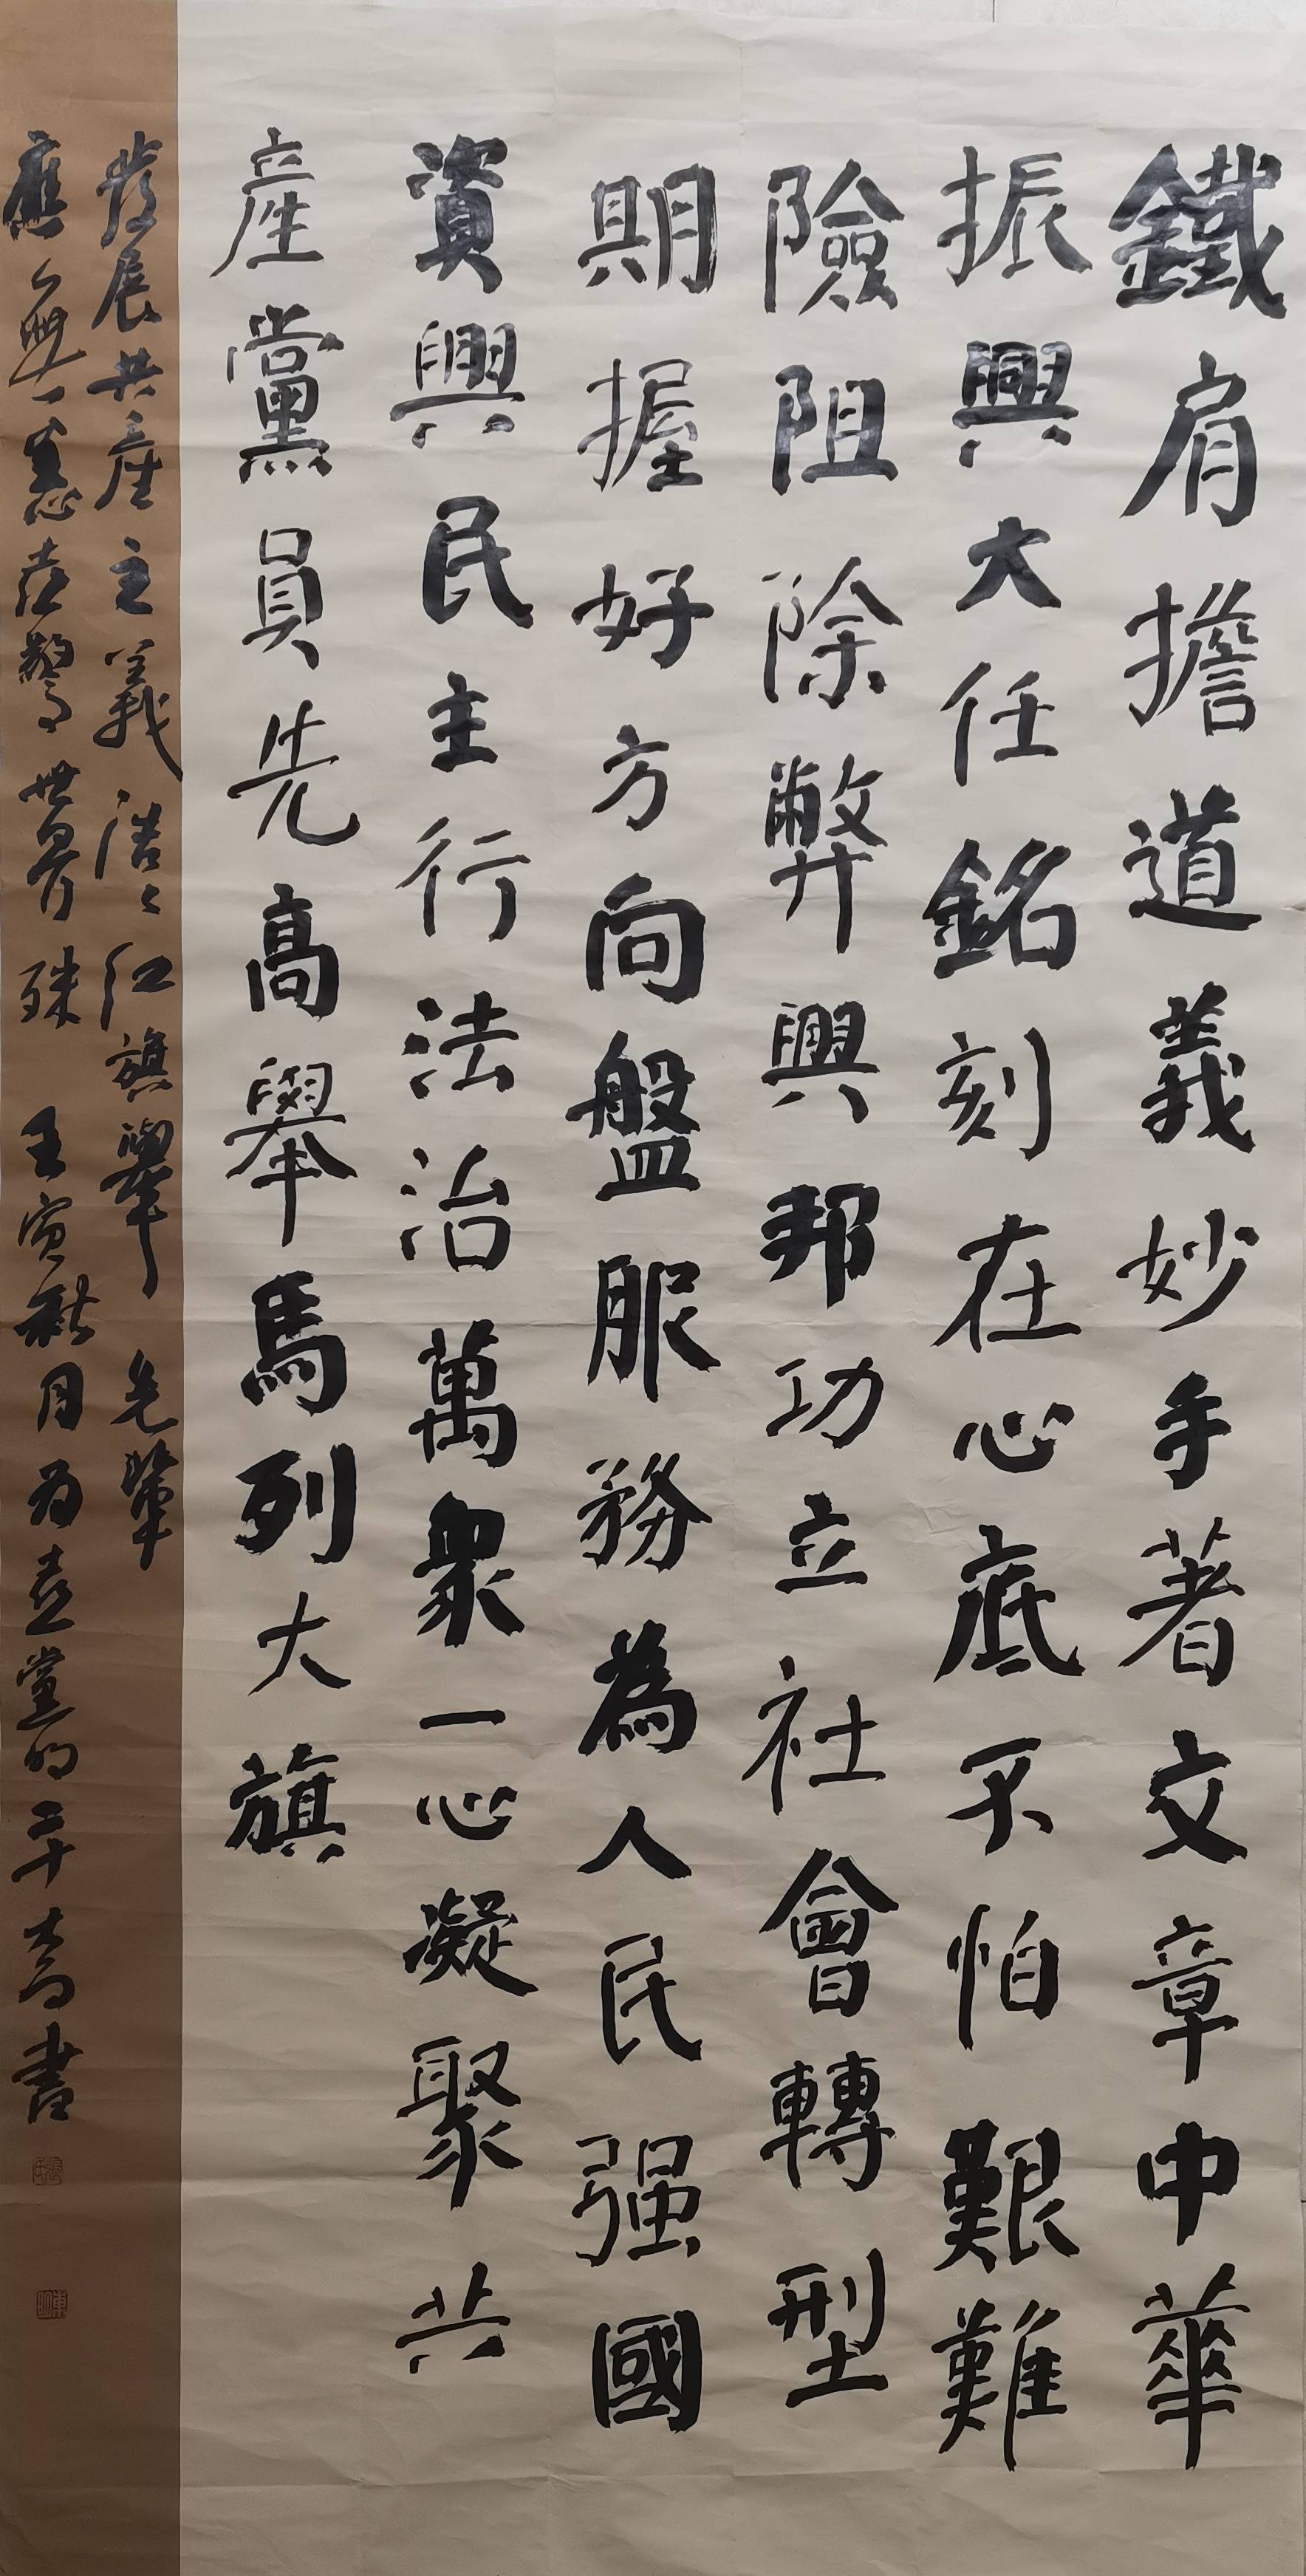 鐵肩擔道義妙手著文章中華
振興大任銘刻在心底不怕艱難
險阻除弊興邦功立社會轉型
期握好方向盤服務為人民强國
資興民主行法治萬衆一心凝聚共
産黨員先高舉馬列大旗
發展共産主義浩々紅旗舉先輩
應無意志驚世界殊王寅秋月為黨的二十大書